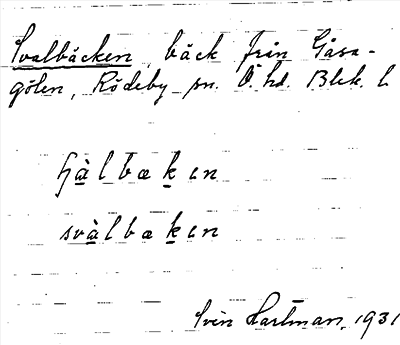 Svalbäcken, bäck från Gåsa-
gölen, Rödeby sn. Ö. hd. Blek. l.
hàlbæken
svàlbæken
Sven Hartman, 1931